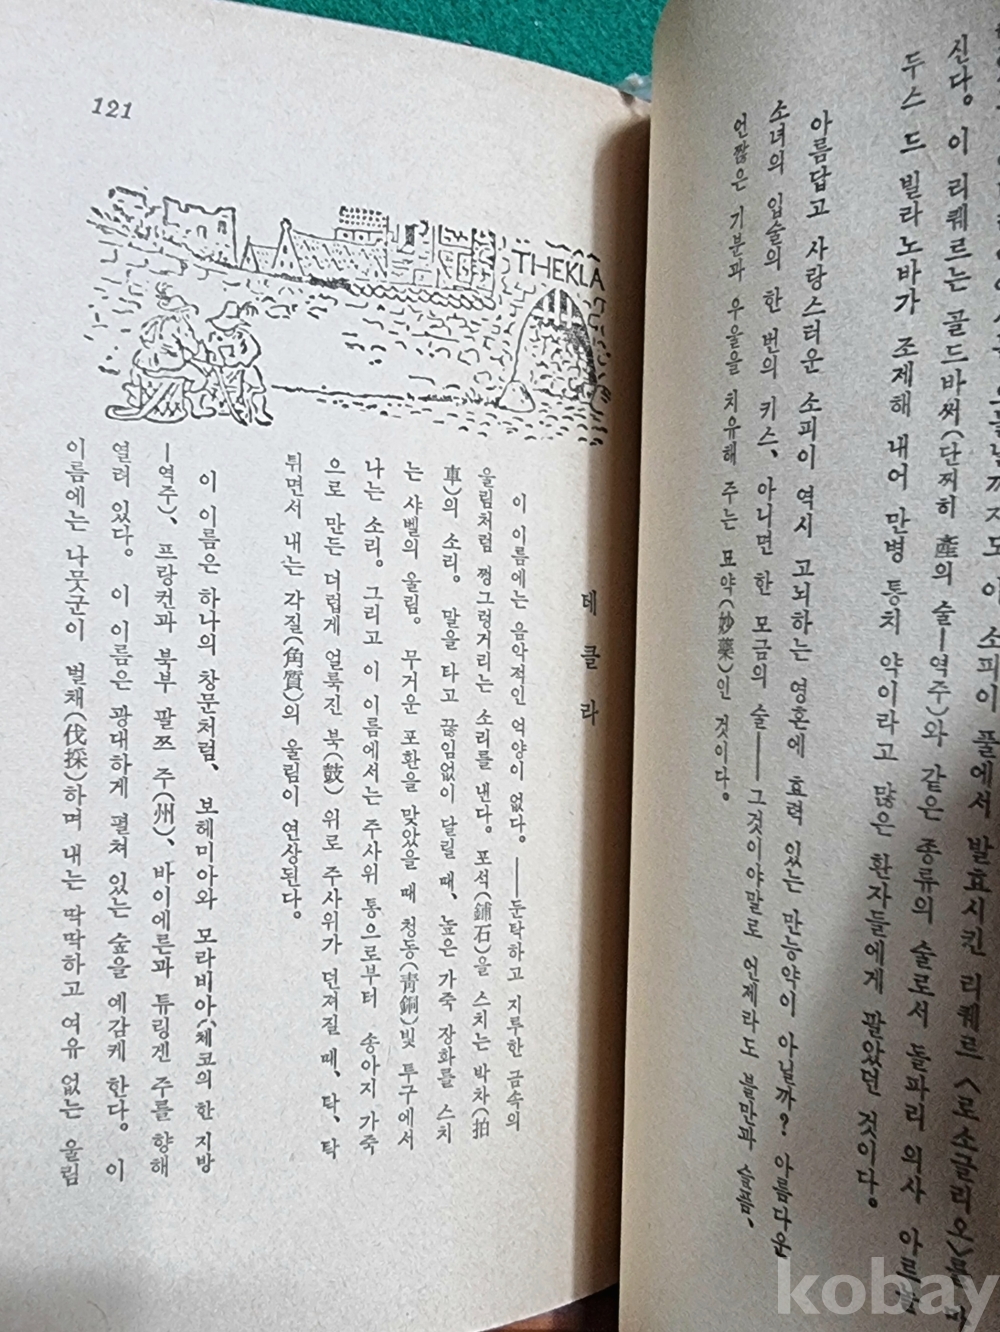 신다。 이 리퀘르는 골드바써(단찌히 產의 술—역주)와 같은 종류의 술로서 돌파리 의사 아르놀
두스 드 빌라노바가 조제해 내어 만병 통치 약이라고 많은 환자들에게 팔았던 것이다。
아름답고 사랑스러운 소피이 역시 고뇌하는 영혼에 효력 있는 만능약이 아닐까? 아름다운
소녀의 입술의 한 번의 키스、 아니면 한 모금의 술——그것이야말로 언제라도 불만과 슬픔、
언짢은 기분과 우울을 치유해 주는 묘약(妙藥)인 것이다。
121
THEKLA
테클라
이 이름에는 음악적인 억양이 없다。——둔탁하고 지루한 금속의
울림처럼 쩡그렁거리는 소리를 낸다。 포석(鋪石)을 스치는 박차(拍
車)의 소리。 말을 타고 끊임없이 달릴 때、 높은 가죽 장화를 스치
는 샤벨의 울림。 무거운 포환을 맞았을 때 청동(靑銅)빛 투구에서
나는 소리。 그리고 이 이름에서는 주사위 통으로부터 송아지 가죽
으로 만든 더럽게 얼룩진 북(鼓) 위로 주사위가 던져질 때、 탁、 탁
튀면서 내는 각질(角質)의 울림이 연상된다。
이 이름은 하나의 창문처럼、 보헤미아와 모라비아(체코의 한 지방
—역주)、 프랑컨과 북부 팔쯔 주(州)、 바이에른과 튜링겐 주를 향해
열려 있다。 이 이름은 광대하게 펼쳐 있는 숲을 예감케 한다。 이
이름에는 나뭇군이 벌채(伐採)하며 내는 딱딱하고 여유 없는 울림
kobay